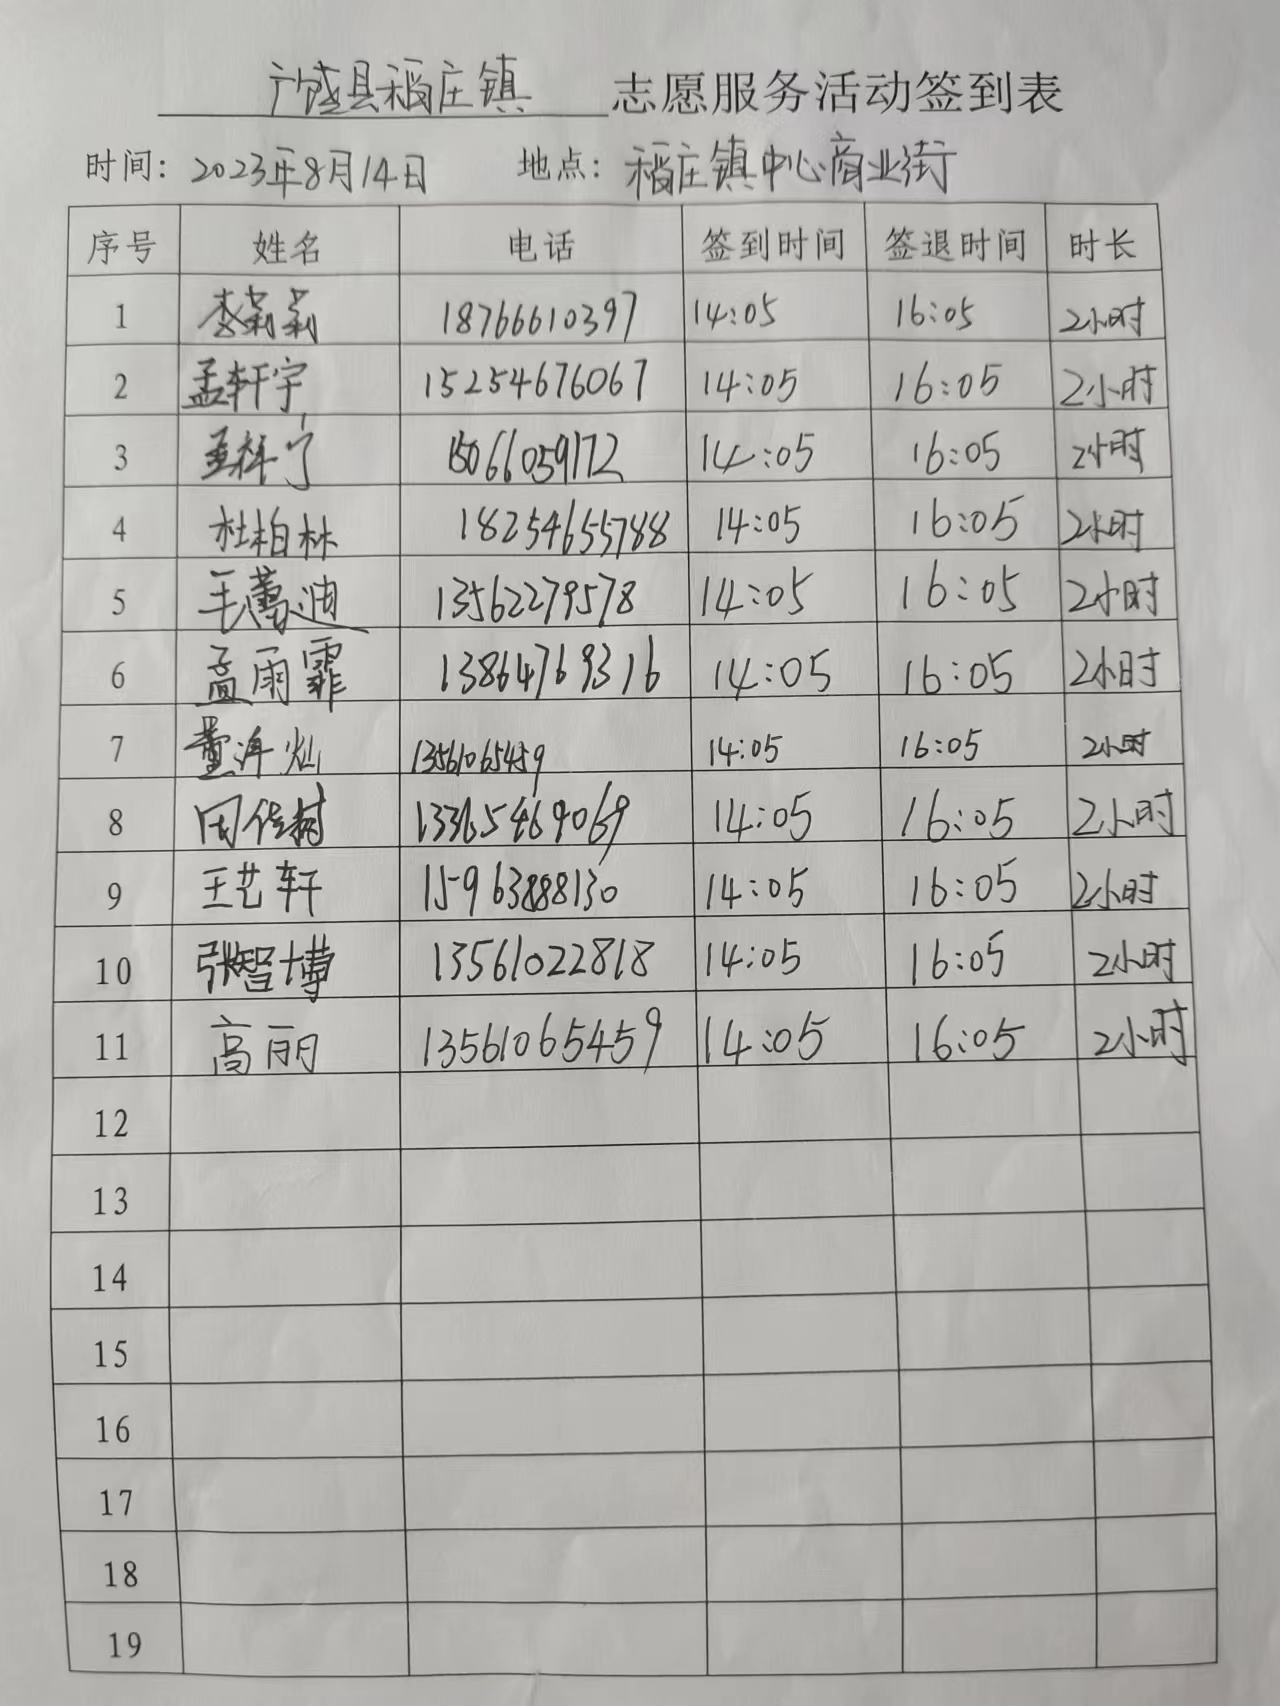 广饶县稻庄镇 志愿服务活动签到表
时间：2023年8月14日 地点：稻庄镇中心商业街
序号 姓名 电话 签到时间 签退时间 时长
1 李莉莉 18766610397 14:05 16:05 2小时
2 孟轩宇 15254676067 14:05 16:05 2小时
3 15066059172 14:05 16:05 2小时
4 杜柏林 18254655788 14:05 16:05 2小时
5 13562279578 14:05 16:05 2小时
6 孟雨霏 13864769316 14:05 16:05 2小时
7 13561065459 14:05 16:05 2小时
8 13365469069 14:05 16:05 2小时
9 王艺轩 15963888130 14:05 16:05 2小时
10 张智博 13561022818 14:05 16:05 2小时
11 高丽 13561065459 14:05 16:05 2小时
12
13
14
15
16
17
18
19